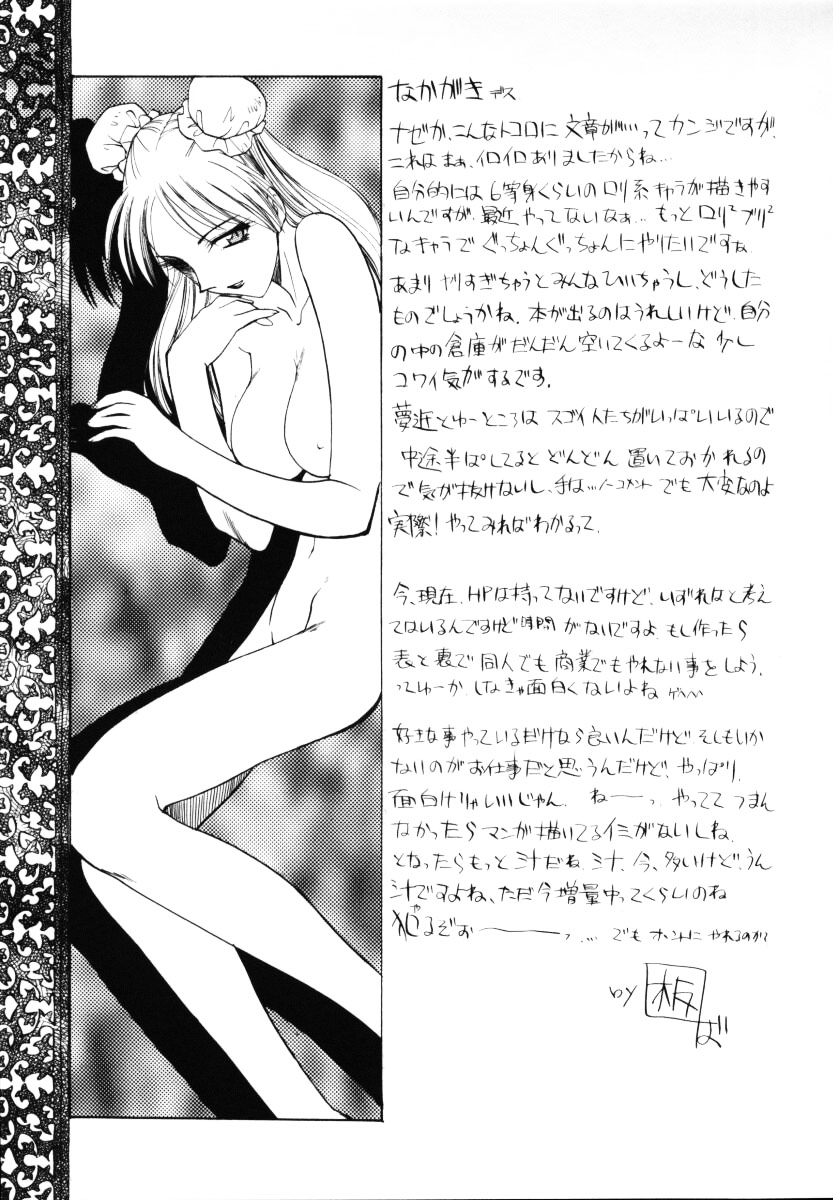 なかがきデス
ナゼか、こんなトコロに文章が…ってカンジですが、
これはまぁ、イロイロありましたからね…
自分的には6等身くらいのロリ系キャラが描きやす
いんですが、最近やってないなぁ… もっとロリ²プリ²
なキャラでぐっちょんぐっちょんにやりたいですね
あまりやりすぎちゃうとみんなひいちゃうし、どうした
ものでしょうかね。本が出るのはうれしいけど、自分
の中の倉庫がだんだん空いてくるよーな少し
コワイ気がするです。
夢近とゆーところはスゴイ人たちがいっぱいいるので
中途半ぱしてるとどんどん置いておかれるの
で気が抜けないし、手は…ノーコメントでも大変なのよ
実際!やってみればわかるって、
今、現在、HPは持ってないですけど、いずれはと考え
てはいるんですけど時間がないですよもし作ったら
表と裏で同人でも商業でもやれない事をしよう、
ってゆーか、しなきゃ面白くないよね
好きな事やっているだけなら良いんだけど、そしもいか
ないのがお仕事だと思うんだけど、やっぱり、
面白けりゃいいじゃん、ねーっ、やってて つまん
なかったらマンガ描いてるイミがないしね、
となったらもっと汁だね、汁、今、多いけど、うん
汁ですよね、ただ今増量中ってくらいのね
犯るぞぉーーっ…でもホントにやれるのか?
や
by 板
ば